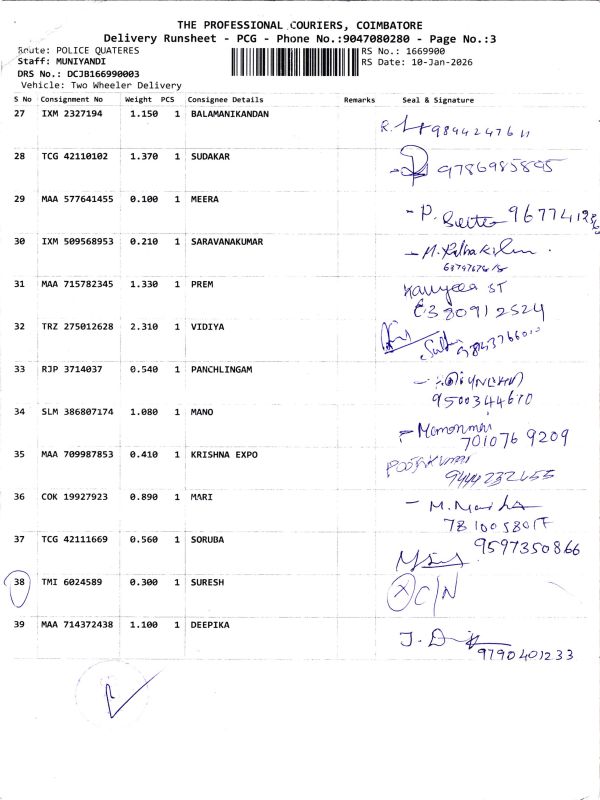 THE PROFESSIONAL COURIERS, COIMBATORE
Delivery Runsheet - PCG - Phone No.:9047080280 - Page No.:3
Route: POLICE QUATERES
RS No.: 1669900
Staff: MUNIYANDI
RS Date: 10-Jan-2026
DRS No.: DCJB166990003
Vehicle: Two Wheeler Delivery
S No Consignment No Weight PCS Consignee Details Remarks Seal & Signature
27 IXM 2327194 1.150 1 BALAMANIKANDAN
28 TCG 42110102 1.370 1 SUDAKAR
9786985895
29 MAA 577641455 0.100 1 MEERA
30 IXM 509568953 0.210 1 SARAVANAKUMAR
31 MAA 715782345 1.330 1 PREM
32 TRZ 275012628 2.310 1 VIDIYA
33 RJP 3714037 0.540 1 PANCHLINGAM
9500344670
34 SLM 386807174 1.080 1 MANO
701076 9209
35 MAA 709987853 0.410 1 KRISHNA EXPO
36 COK 19927923 0.890 1 MARI
37 TCG 42111669 0.560 1 SORUBA
9597350866
38 TMI 6024589 0.300 1 SURESH
X C/N
39 MAA 714372438 1.100 1 DEEPIKA
9790401233